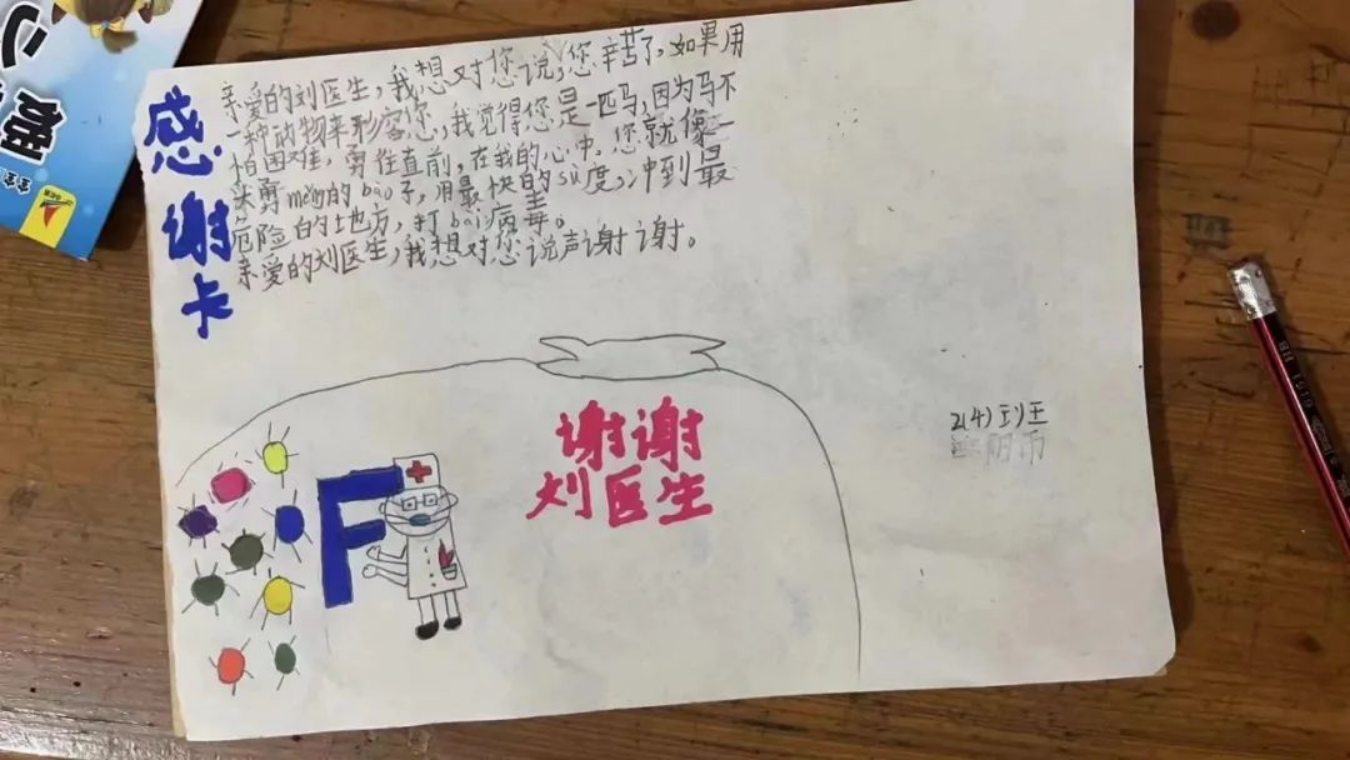 感谢卡
亲爱的刘医生,我想对您说,您辛苦了,如果用
一种动物来形容您,我觉得您是一匹马,因为马不
怕困难,勇往直前,在我的心中,您就像一
头勇měng的bào子,用最快的sù度,冲到最
危险的土地方,打bài病毒。
亲爱的刘医生,我想对您说声谢谢。
谢谢
刘医生
F
2(4)王
阴币
HB
6151